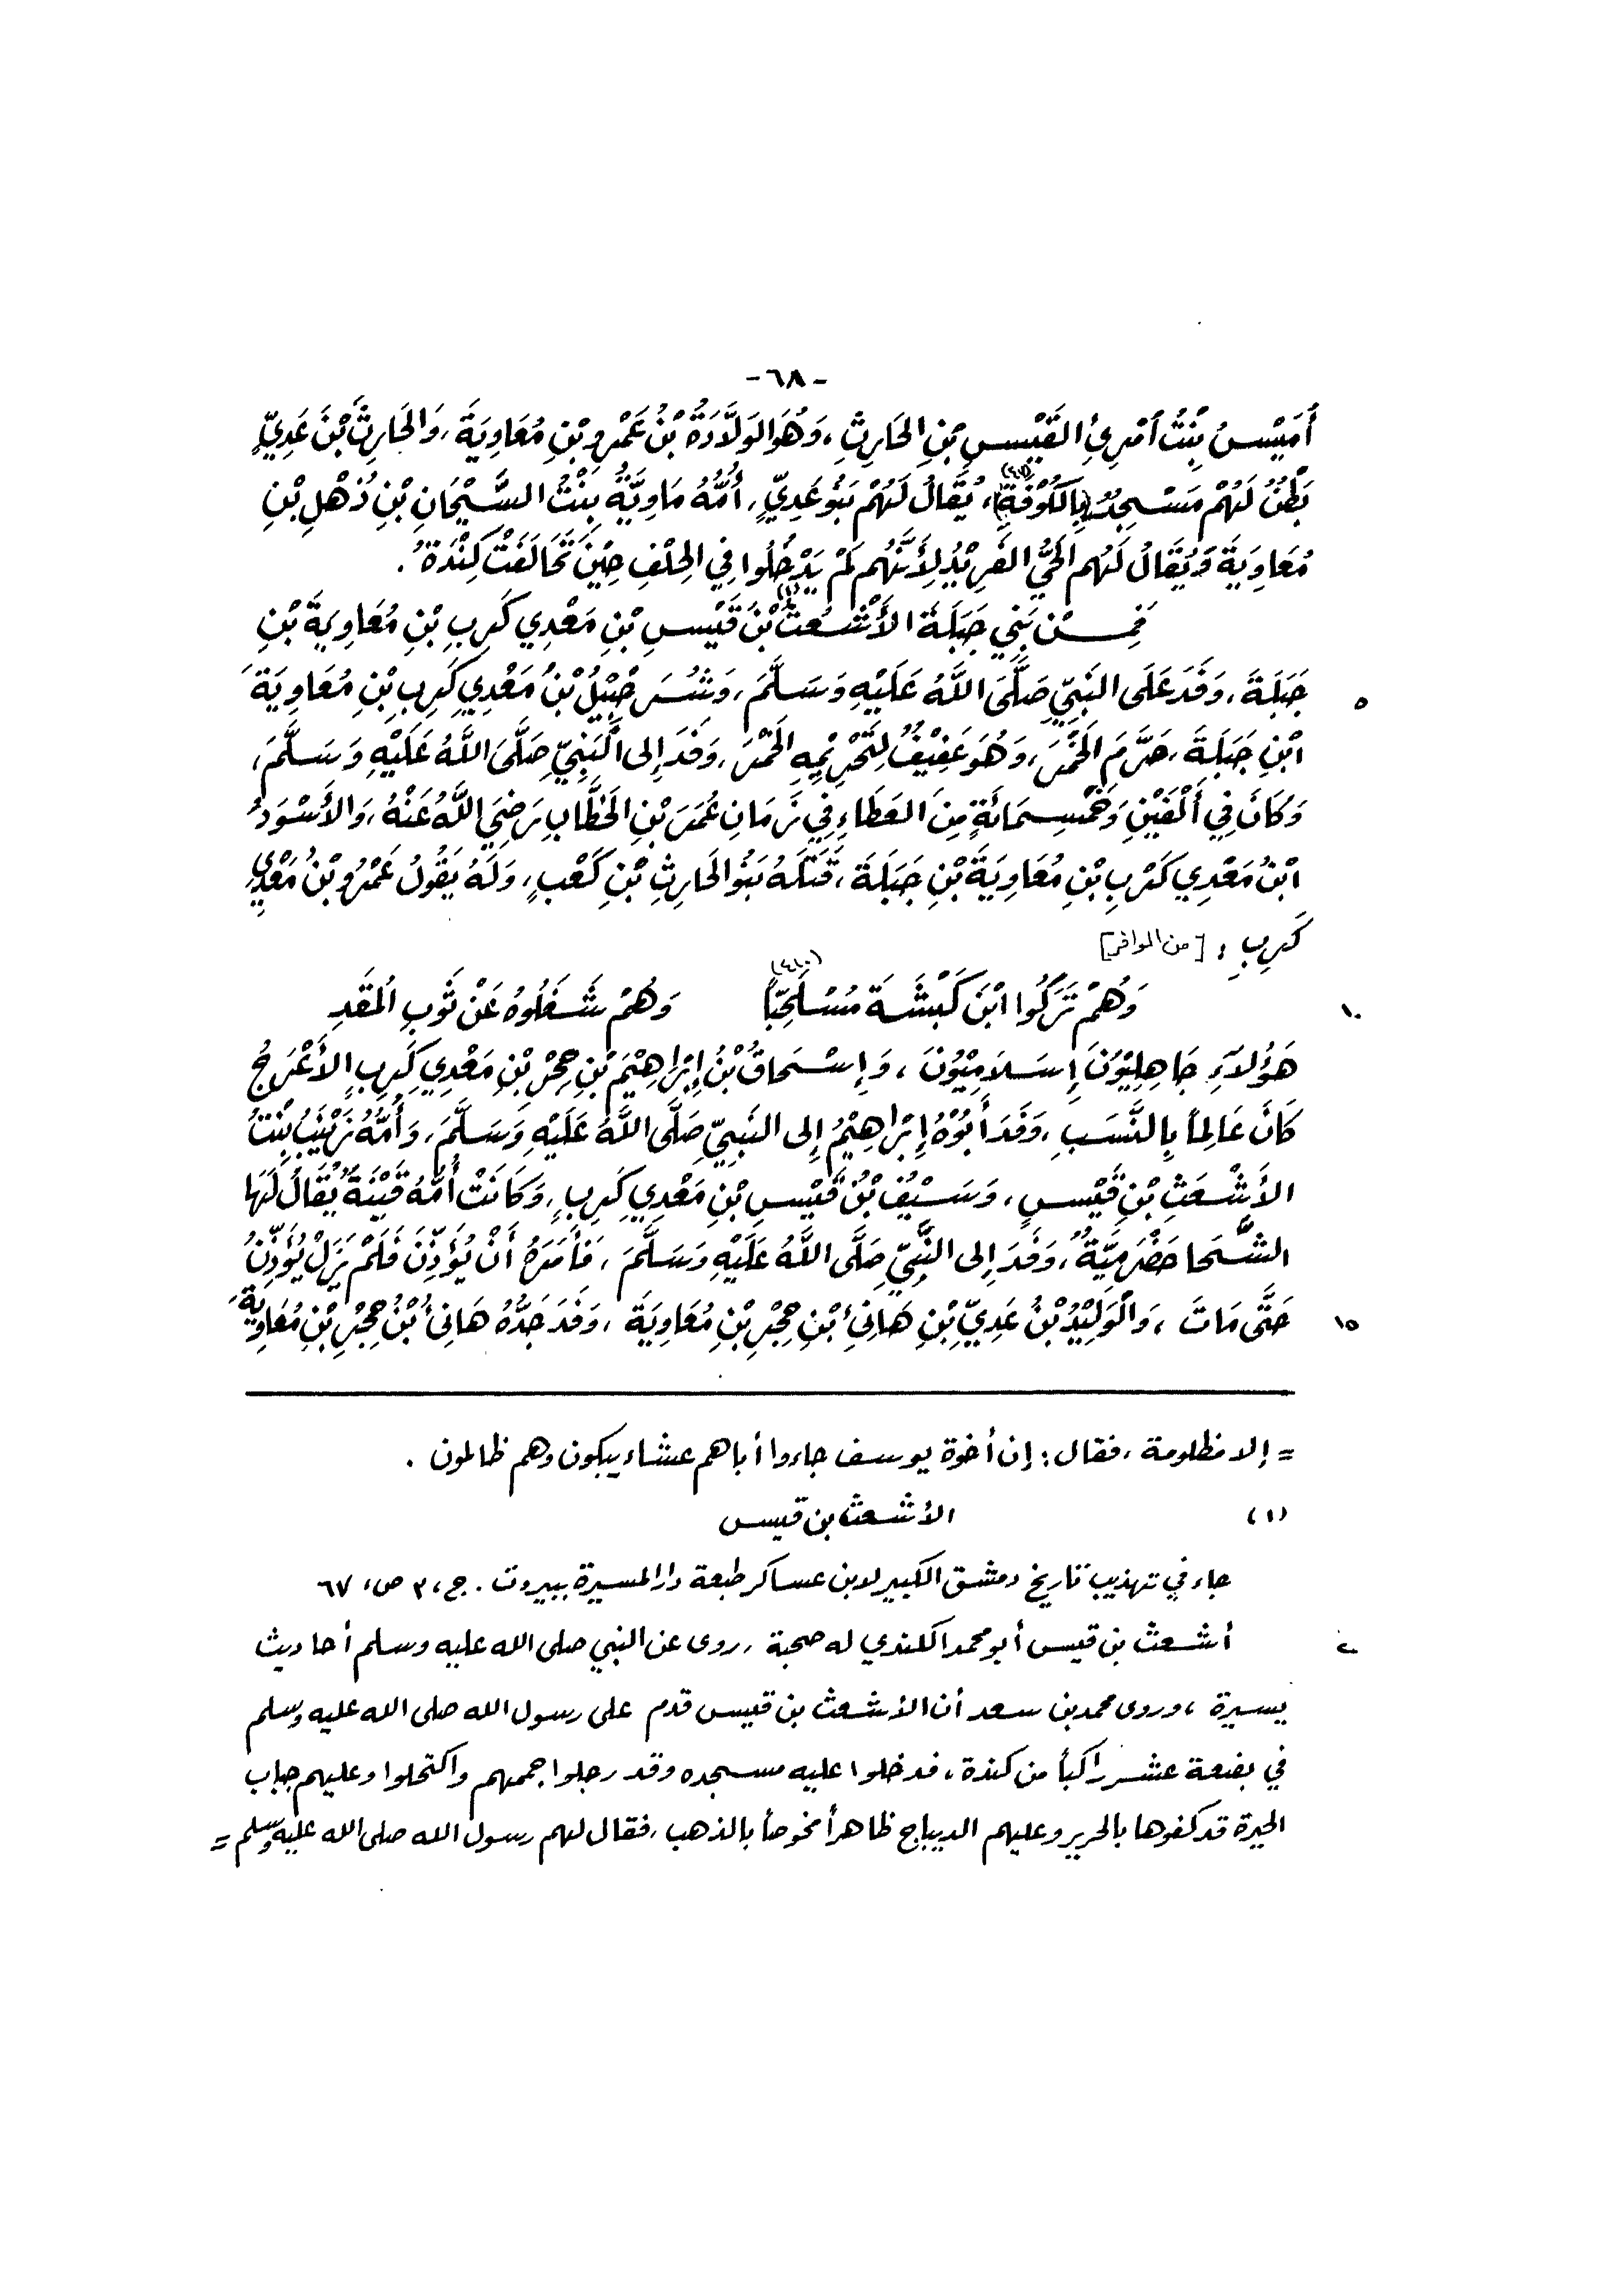 -٦٨-
أُمَيْسُ بِنْتُ ٱمْرِئِ القَيْسِ بْنِ الحَارِثِ، وَهُوَ الوَلَّادَةُ بْنُ عَمْرِو بْنِ مُعَاوِيَةَ، وَالحَارِثَ بْنَ عَدِيٍّ
بَطْنٌ لَهُمْ مَسْجِدٌ (بِالكُوْفَةِ)، يُقَالُ لَهُمْ بَنُو عَدِيٍّ، أُمُّهُ مَاوِيَّةُ بِنْتُ السَّيْحَانِ بْنِ ذُهْلِ بْنِ
مُعَاوِيَةَ وَيُقَالُ لَهُم الحَيُّ الفَرِيْدُ لِأَنَّهُم لَمْ يَدْخُلُوا فِي الحِلْفِ حِيْنَ تَحَالَفَتْ كِنْدَةُ.
فَمِنْ بَنِي جَبَلَةَ الأَشْعَثُ (١) بْنُ قَيْسِ بْنِ مَعْدِي كَرِبِ بْنِ مُعَاوِيَةَ بْنِ
جَبَلَةَ، وَفَدَ عَلَى النَبِيِّ صَلَّى اللَّهُ عَلَيْهِ وَسَلَّمَ، وَشُرَحْبِيْلُ بْنُ مَعْدِي كَرِبِ بْنِ مُعَاوِيَةَ ٥
ابْنِ جَبَلَةَ، حَرَّمَ الخَمْرَ، وَهُوَ عَفِيْفٌ لِتَحْرِيْمِهِ الخَمْرَ، وَفَدَ إِلى النَبِيِّ صَلَّى اللَّهُ عَلَيْهِ وَسَلَّمَ،
وَكَانَ فِي أَلْفَيْنِ وَخَمْسِمَائَةٍ مِنَ العَطَاءِ فِي زَمَانِ عُمَرَ بْنِ الخَطَّابِ رَضِيَ اللَّهُ عَنْهُ، وَالأَسْوَدُ
ابْنُ مَعْدِي كَرِبِ بْنِ مُعَاوِيَةَ بْنِ جَبَلَةَ، قَتَلَهُ بَنُو الحَارِثِ بْنِ كَعْبٍ، وَلَهُ يَقُولُ عَمْرُو بْنُ مَعْدِي
كَرِبِ: [من الوافر]
وَهُمْ تَرَكُوا ابْنَ كَبْشَةَ مُسْلَحِبّاً وَهُمْ شَغَلُوهُ عَنْ شُرْبِ المَقَدِ ١٠
هَؤُلاَءِ جَاهِلِيُّونَ إِسَلاَمِيُّونَ، وَإِسْحَاقُ بْنُ إِبْرَاهِيْمَ بْنِ حُجْرِ بْنِ مَعْدِي كَرِبِ الأَعْرَجُ
كَانَ عَالِماً بِالنَّسَبِ، وَفَدَ أَبُوْهُ إِبْرَاهِيْمُ إِلى النَبِيِّ صَلَّى اللَّهُ عَلَيْهِ وَسَلَّمَ، وَأُمُّهُ زَيْنَبُ بِنْتُ
الأَشْعَثِ بْنِ قَيْسٍ، وَسَيْفُ بْنُ قَيْسِ بْنِ مَعْدِي كَرِبٍ، وَكَانَتْ أُمُّهُ قَيْنَةً يُقَالُ لَهَا
الشَّحَا حَضْرَمِيَّةٌ، وَفَدَ إِلى النَّبِيِّ صَلَّى اللَّهُ عَلَيْهِ وَسَلَّمَ، فَأَمَرَهُ أَنْ يُؤَذِّنَ فَلَمْ يَزَلْ يُؤَذِّنُ
حَتَّى مَاتَ، وَالْوَلِيْدُ بْنُ عَدِيِّ بْنِ هَانِئِ بْنِ حُجْرِ بْنِ مُعَاوِيَةَ، وَفَدَ جَدُّهُ هَانِئُ بْنُ حُجْرِ بْنِ مُعَاوِيَةَ ١٥
= إلا مظلومة، فقال: إن أخوة يوسف جاءوا أباهم عشاء يبكون وهم ظالمون.
(١) الأشعث بن قيس
جاء في تهذيب تاريخ دمشق الكبير لابن عساكر طبعة دار المسيرة ببيروت. ج، ٣ ص، ٦٧
أشعث بن قيس أبو محمد الكندي له صحبة، روى عن النبي صلى الله عليه وسلم أحاديث
يسيرة، وروى محمد بن سعد أن الأشعث بن قيس قدم على رسول الله صلى الله عليه وسلم
في بضعة عشر راكباً من كندة، فدخلوا عليه مسجده وقد رجلوا جممهم واكتحلوا وعليهم جباب
الحيرة قد كفوها بالحرير وعليهم الديباج ظاهراً مخوصاً بالذهب، فقال لهم رسول الله صلى الله عليه وسلم =